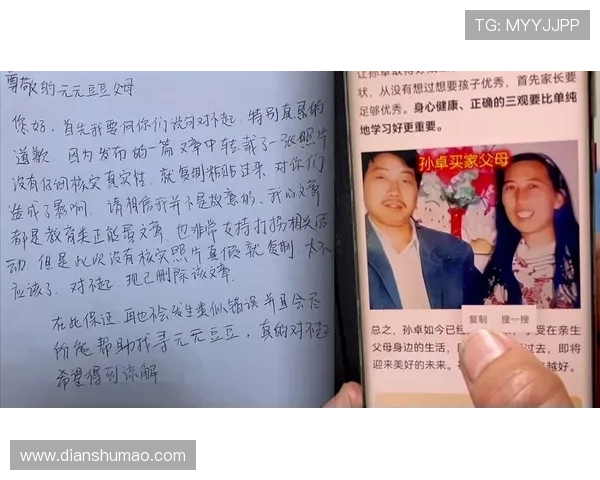 TG: MYYJJPP
尊敬的元元豆豆父母
您好，首先我要向你们说句对不起，特别真恳的
道歉，因为发布的一篇文章中转载了一张照片
没有仔细核实真实性，就复制粘贴过来，对你们
造成了影响，请相信我并不是故意的，我的文章
都是教育类正能量文章，也非常支持打拐相关活
动，但是此次没有核实照片真假就复制，太不
应该了，对不起，现已删除该文章。
在此保证，再也不会发生类似错误并且会尽
所能帮助找寻元元豆豆，真的对不起
希望得到谅解
让孙卓取得好成
状，从没有想过想要孩子优秀，首先家长要
足够优秀。身心健康、正确的三观要比单纯
地学习好更重要。
孙卓买家父母
复制 搜一搜
总之，孙卓如今已经 享受在亲生
父母身边的生活， 过去，即将
迎来美好的未来。 越好。
www.dianshumao.com